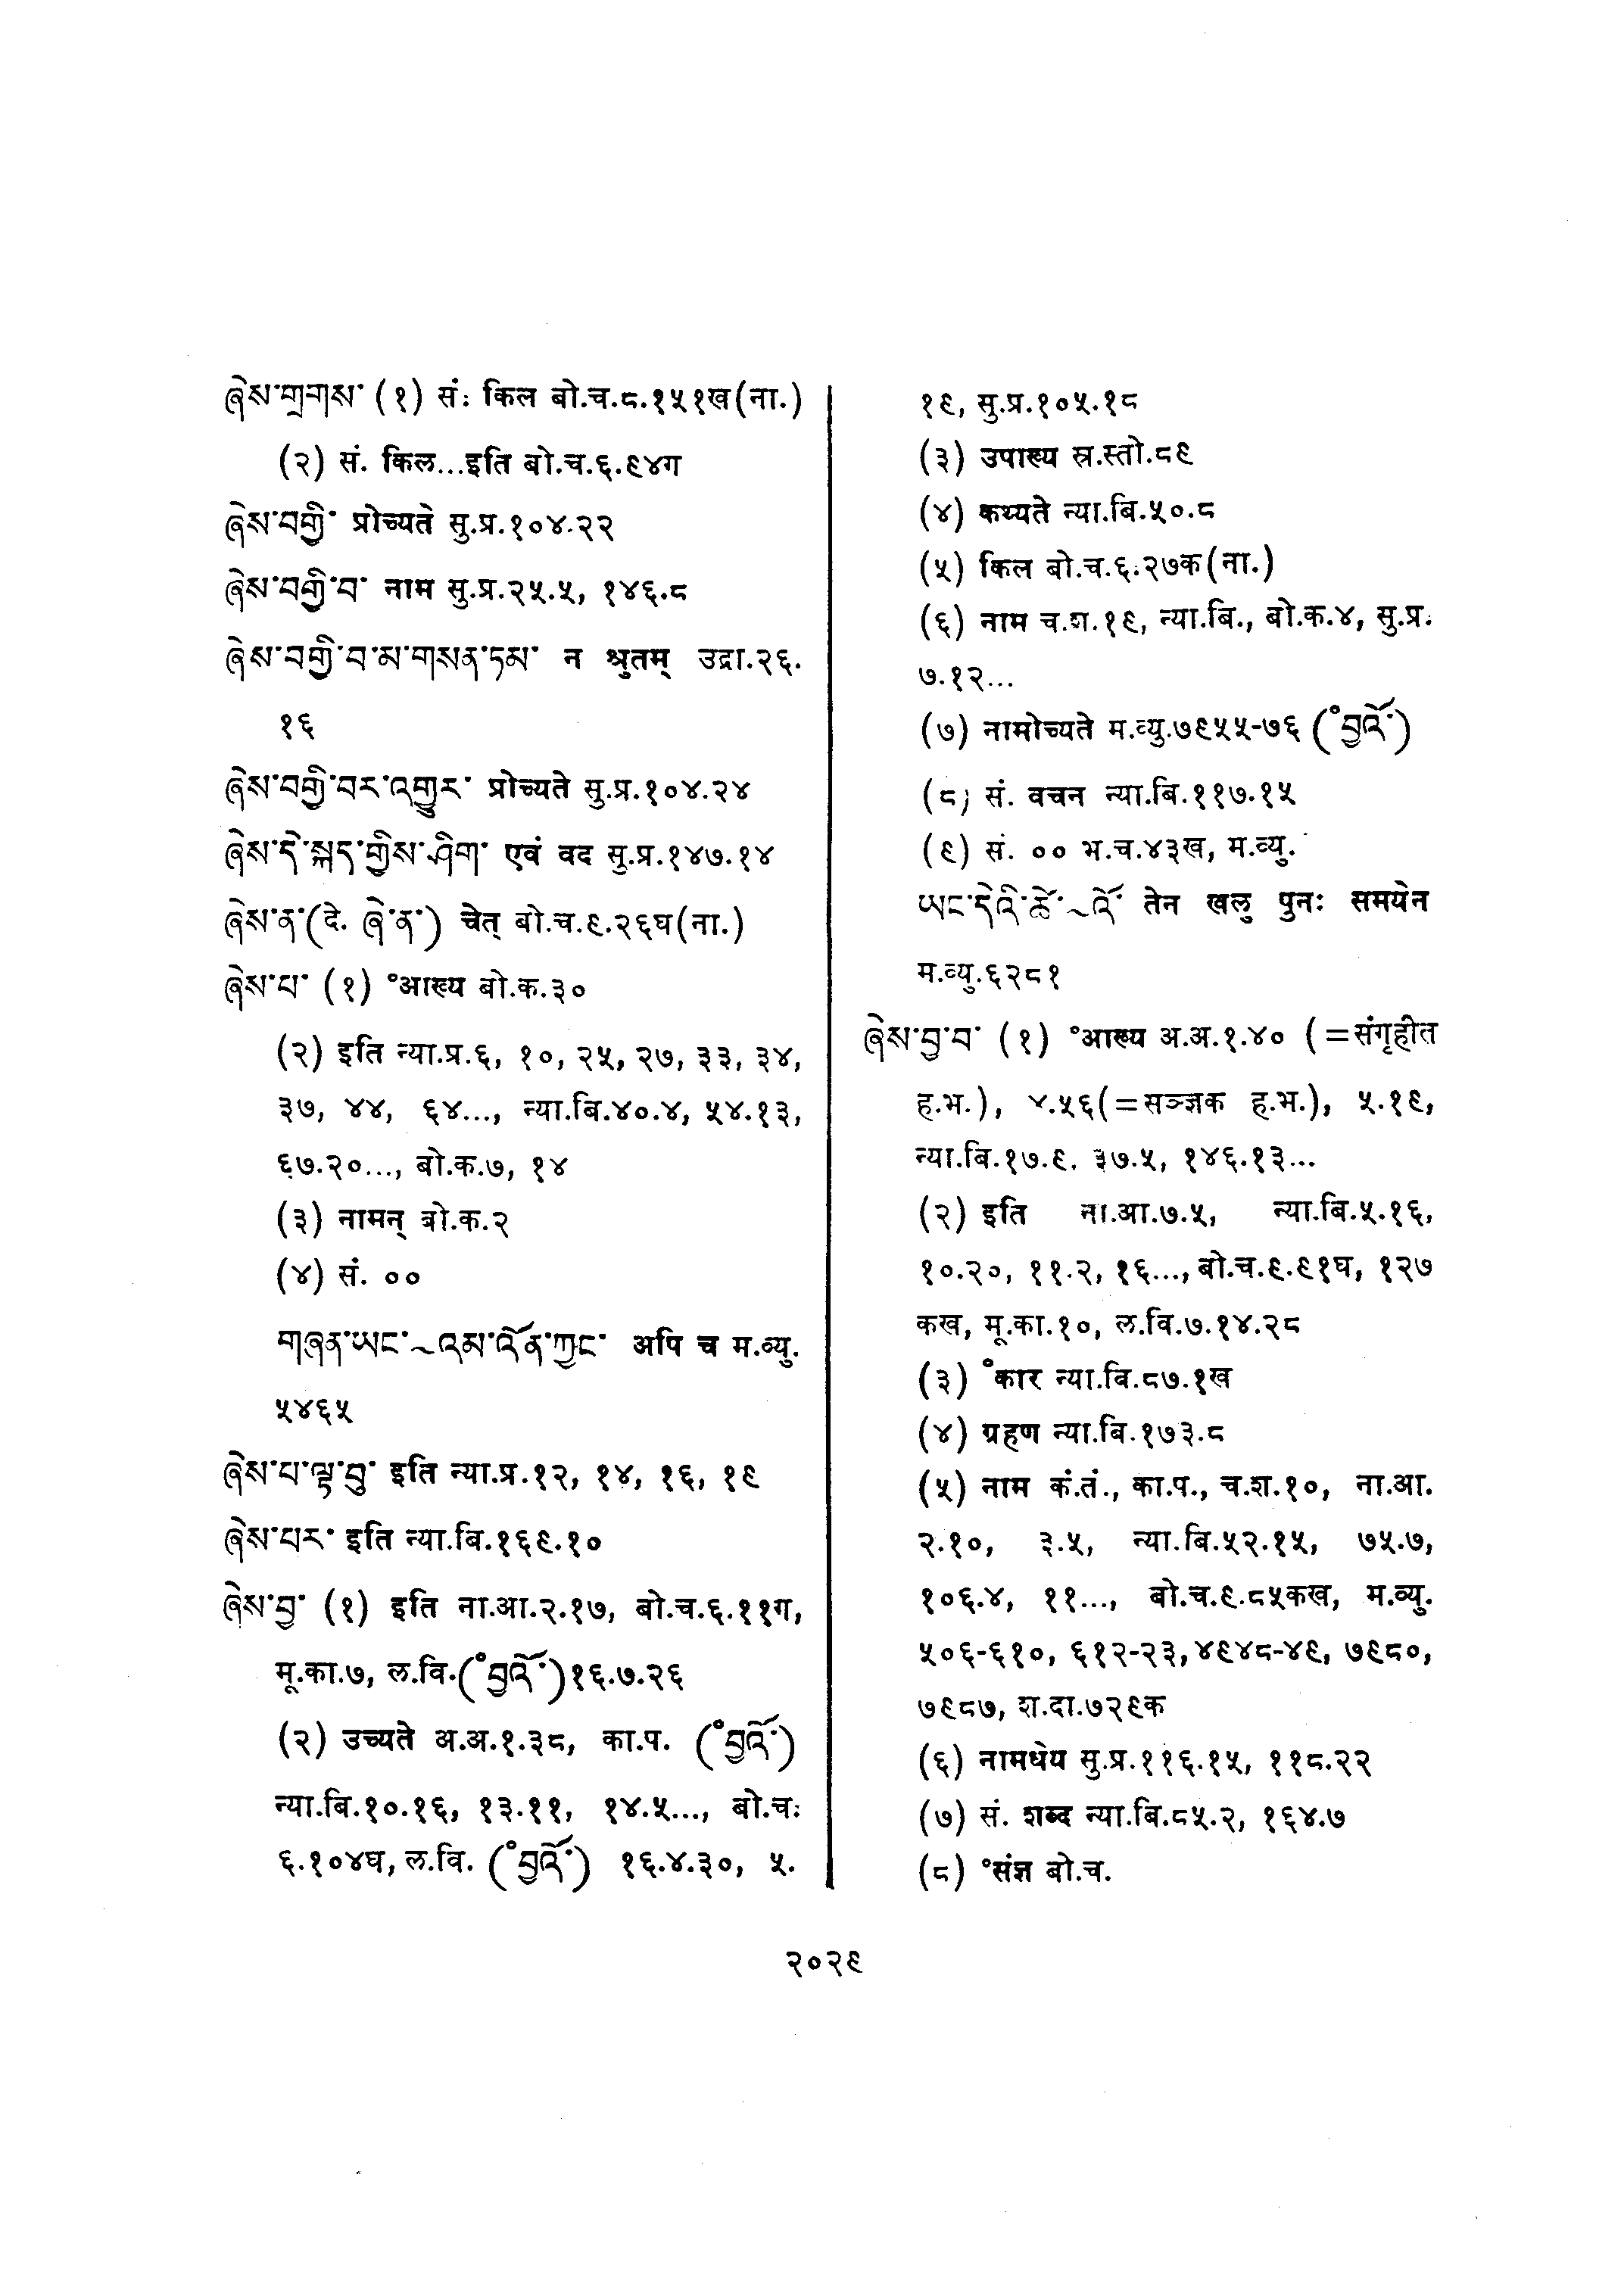 ཞེས་གྲགས་ (१) सं: किल बो.च.८.१५१ख(ना.)
(२) सं. किल...इति बो.च.६.९४ग
ཞེས་བགྱི་ प्रोच्यते सु.प्र.१०४.२२
ཞེས་བགྱི་བ་ नाम सु.प्र.२५.५, १४६.८
ཞེས་བགྱི་བ་མ་གསན་ཏམ་ न श्रुतम् उद्रा.२६.
१६
ཞེས་བགྱི་བར་འགྱུར་ प्रोच्यते सु.प्र.१०४.२४
ཞེས་དེ་སྐད་གྱིས་ཤིག་ एवं वद सु.प्र.१४७.१४
ཞེས་ན་(दे. ཞེ་ན་) चेत् बो.च.९.२६घ(ना.)
ཞེས་པ་ (१) °आख्य बो.क.३०
(२) इति न्या.प्र.६, १०, २५, २७, ३३, ३४,
३७, ४४, ६४..., न्या.बि.४०.४, ५४.१३,
६७.२०..., बो.क.७, १४
(३) नामन् बो.क.२
(४) सं. ००
གཞན་ཡང་~འམ་འོན་ཀྱང་ अपि च म.व्यु.
५४६५
ཞེས་པ་ལྟ་བུ་ इति न्या.प्र.१२, १४, १६, १९
ཞེས་པར་ इति न्या.बि.१६९.१०
ཞེས་བྱ་ (१) इति ना.आ.२.१७, बो.च.६.११ग,
मू.का.७, ल.वि.(°བྱའོ་)१६.७.२६
(२) उच्यते अ.अ.१.३८, का.प. (°བྱའོ་)
न्या.बि.१०.१६, १३.११, १४.५..., बो.च:
६.१०४घ, ल.वि. (°བྱའོ་) १६.४.३०, ५.
१९, सु.प्र.१०५.१८
(३) उपाख्य स्र.स्तो.८९
(४) कथ्यते न्या.बि.५०.८
(५) किल बो.च.६.२७क(ना.)
(६) नाम च.श.१९, न्या.बि., बो.क.४, सु.प्र.
७.१२...
(७) नामोच्यते म.व्यु.७९५५-७६ (°བྱའོ་)
(८) सं. वचन न्या.बि.११७.१५
(९) सं. ०० भ.च.४३ख, म.व्यु.
ཡང་དེའི་ཚེ་~འོ་ तेन खलु पुनः समयेन
म.व्यु.६२८१
ཞེས་བྱ་བ་ (१) °आख्य अ.अ.१.४० (=संगृहीत
ह.भ.), ४.५६(=सञ्ज्ञक ह.भ.), ५.१९,
न्या.बि.१७.९, ३७.५, १४६.१३...
(२) इति ना.आ.७.५, न्या.बि.५.१६,
१०.२०, ११.२, १६..., बो.च.९.९१घ, १२७
कख, मू.का.१०, ल.वि.७.१४.२८
(३) °कार न्या.बि.८७.१ख
(४) ग्रहण न्या.बि.१७३.८
(५) नाम कं.तं., का.प., च.श.१०, ना.आ.
२.१०, ३.५, न्या.बि.५२.१५, ७५.७,
१०६.४, ११..., बो.च.९.८५कख, म.व्यु.
५०६-६१०, ६१२-२३, ४९४८-४९, ७९८०,
७९८७, श.दा.७२९क
(६) नामधेय सु.प्र.११६.१५, ११८.२२
(७) सं. शब्द न्या.बि.८५.२, १६४.७
(८) °संज्ञ बो.च.
२०२९